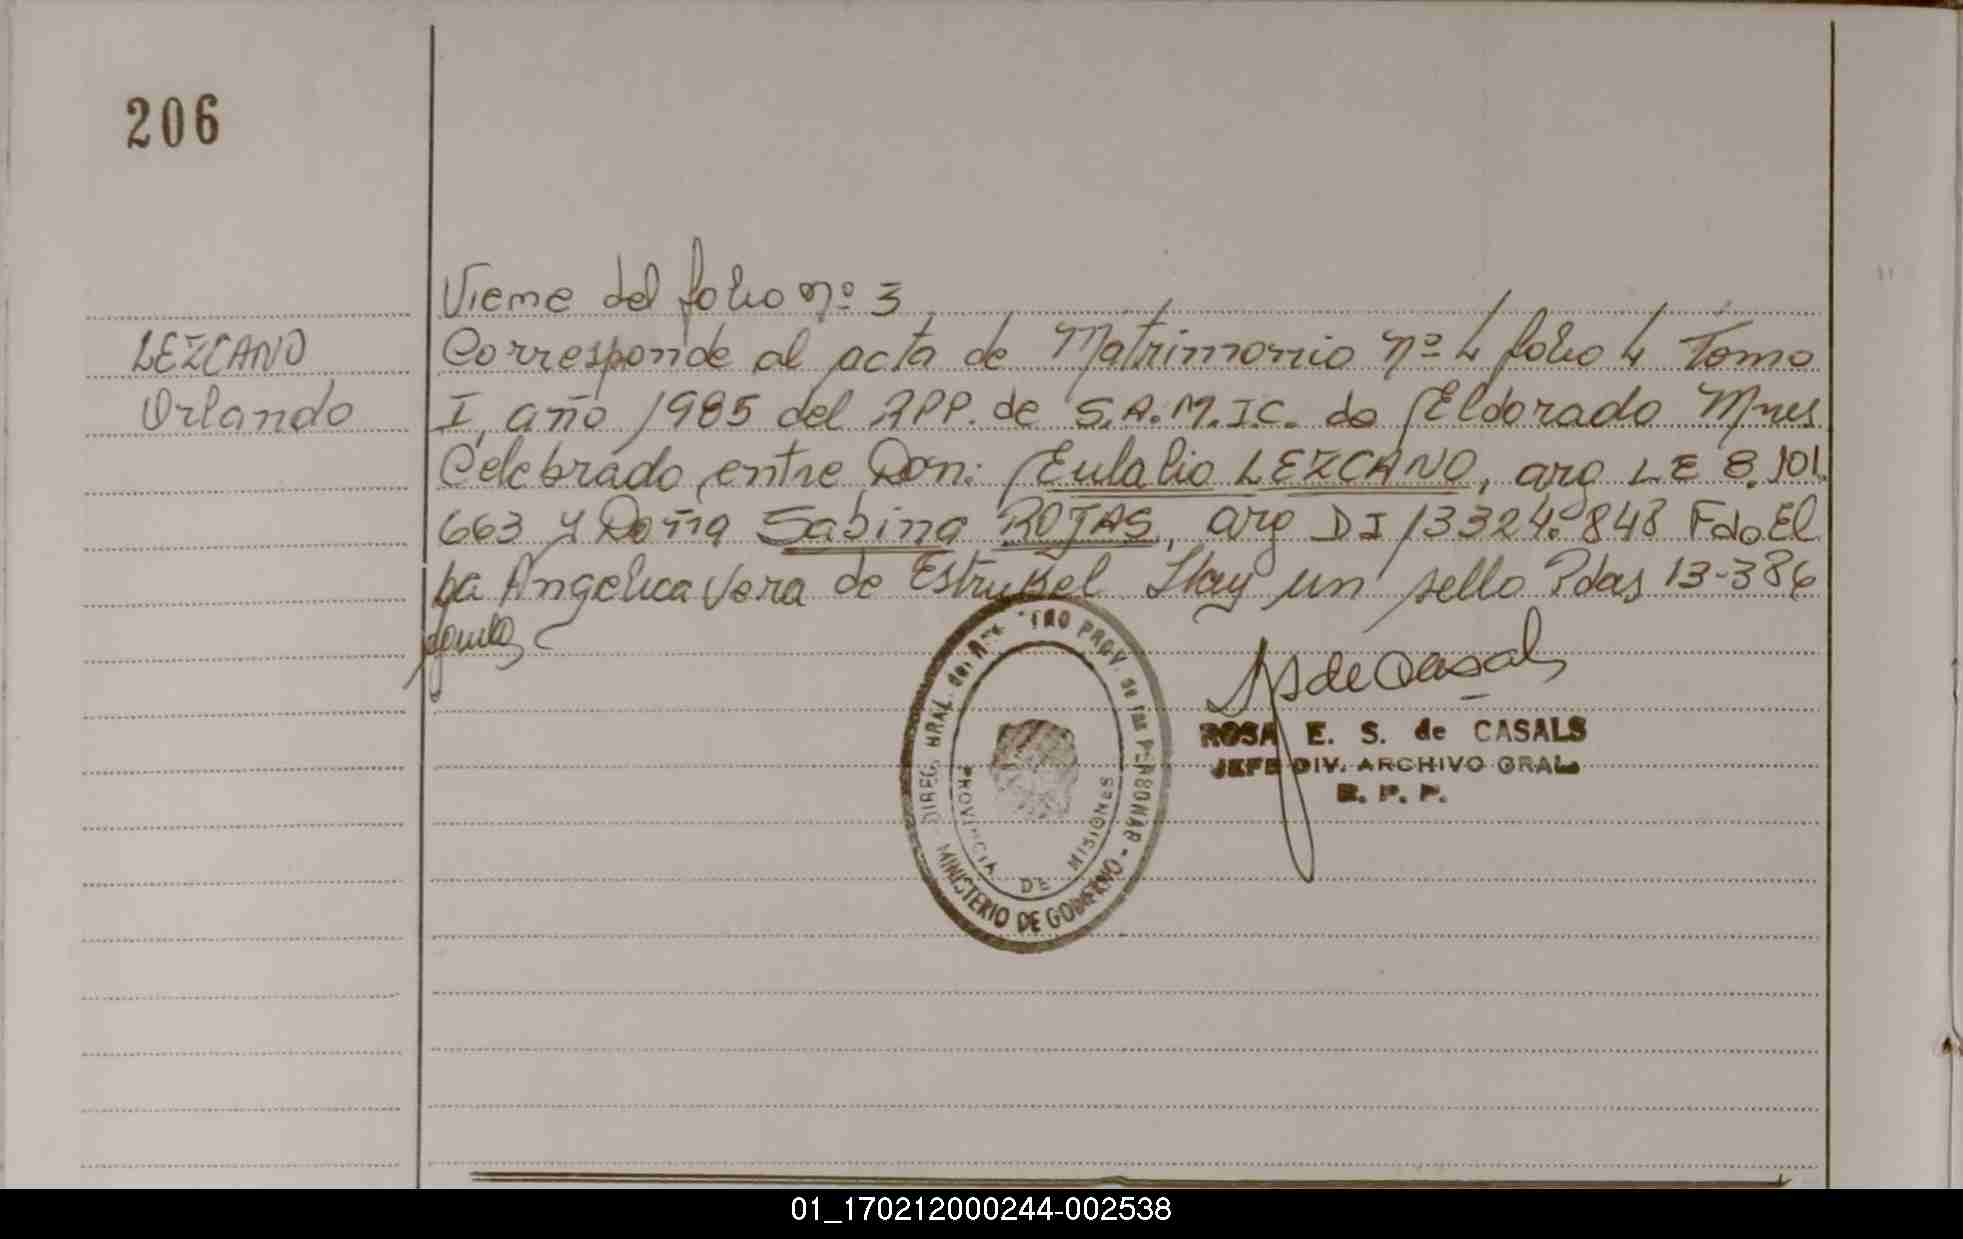 206
Viene del folio nº 3
LEZCANO
Orlando
Corresponde al acta de Matrimonio nº 4 folio 4 Tomo
I, año 1985 del RPP. de S.A.M.I.C. de Eldorado Mnes
Celebrado entre Don: Eulalio LEZCANO, arg LE 8.101.
663 y Doña Sabina ROJAS, arg DI 13324.848 Fdo El
ba Angelica Vera de Hay un sello Pdas 13-386
DIREG. GRAL. del PROV. de las PERSONAS - MINISTERIO DE GOBIERNO -
PROVINCIA DE MISIONES
S de Casals
ROSA E. S. de CASALS
JEFE DIV. ARCHIVO GRAL
R. P. P.
01_170212000244-002538